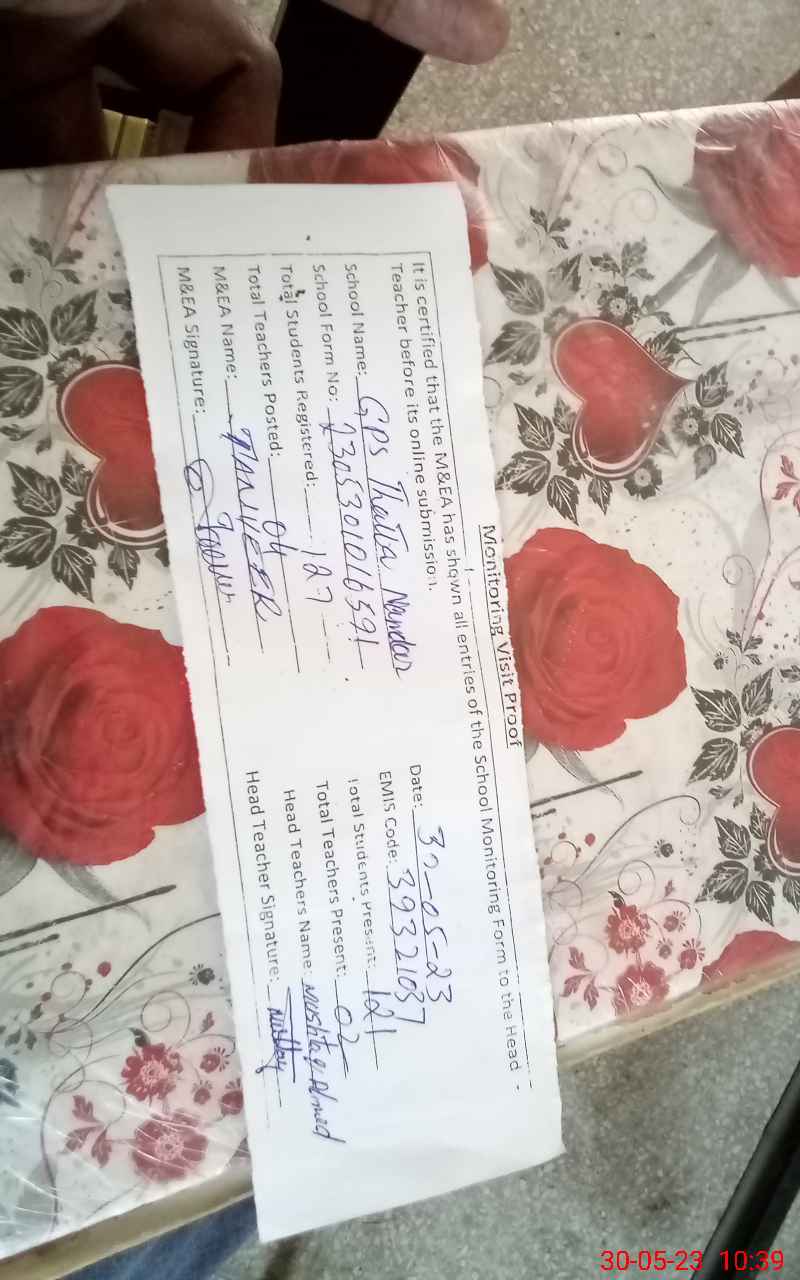 Monitoring Visit Proof
It is certified that the M&EA has shown all entries of the School Monitoring Form to the Head
Teacher before its online submission.
School Name: GPS Thatta Nandar
Date: 30-05-23
School Form No: 2305301016591
EMIS Code: 39321037
Total Students Registered: 127
Total Students Present: 121
Total Teachers Posted: 04
Total Teachers Present: 02
M&EA Name: TANVEER
Head Teachers Name: Mushtaq Ahmed
M&EA Signature:
Head Teacher Signature:
30-05-23 10:39